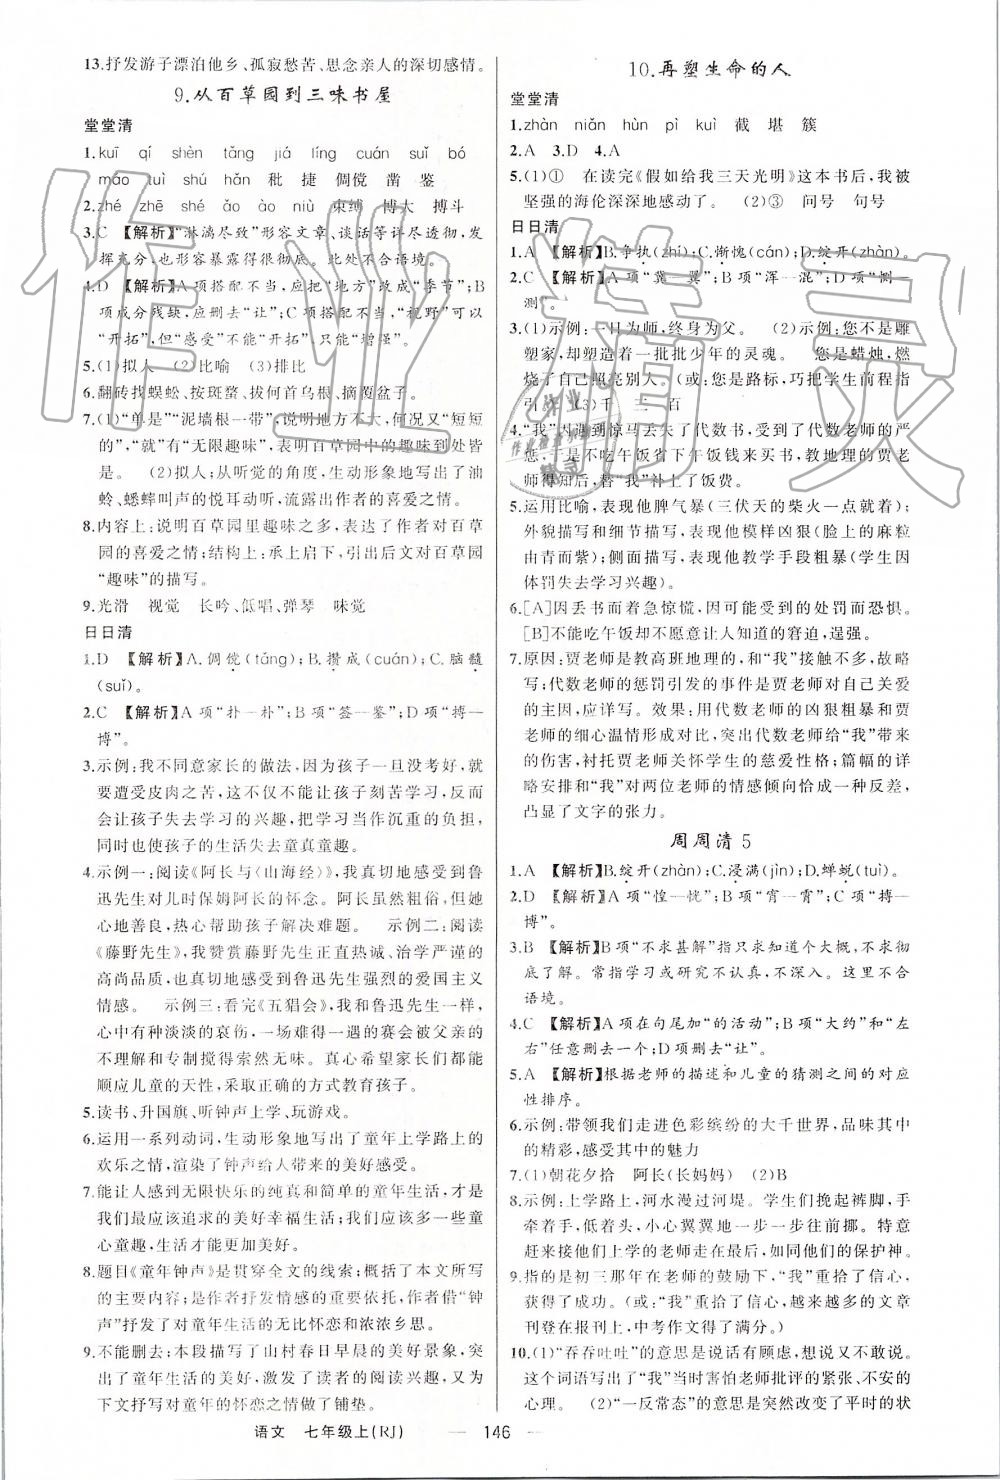 13.抒发游子漂泊他乡、孤寂愁苦、思念亲人的深切感情。
9.从百草园到三味书屋
堂堂清
1.kuī qí shèn tǎng jiá líng cuán suǐ bó
máo tuì shú hǎn 秕 捷 倜傥 凿 鉴
2.zhé zhē shé ǎo ào niù 束缚 博大 搏斗
3.C 【解析】“淋漓尽致”形容文章、谈话等详尽尽透彻,发
挥充分,也形容暴露得很彻底。此处不合语境。
4.D 【解析】A项搭配不当,应把“地方”改成“季节”;B
项成分残缺,应删去“让”;C项搭配不当,“视野”可以
“开拓”,但“感受”不能“开拓”,只能“丰富”。
5.(1)拟人 (2)比喻 (3)排比
6.翻砖找蜈蚣、按斑蝥、拔何首乌根、摘覆盆子。
7.(1)“单是”“泥墙根一带”,说明地方不大,何况又“短短
的”,“就”有“无限趣味”,表明百草园中的趣味到处皆
是。 (2)拟人;从听觉的角度,生动形象地写出了油
蛉、蟋蟀叫声的悦耳动听,流露出作者的喜爱之情。
8.内容上:说明百草园里趣味之多,表达了作者对百草
园的喜爱之情;结构上:承上启下,引出后文对百草园
“趣味”的描写。
9.光滑 视觉 长吟、低唱、弹琴 味觉
日日清
1.D 【解析】A.倜傥(tǎng);B.攒成(cuán);C.脑髓
(suǐ)。
2.C 【解析】A项“扑一朴”;B项“签一鉴”;D项“搏一
博”。
3.示例:我不同意家长的做法,因为孩子一旦没考好,就
要遭受皮肉之苦,这不仅不能让孩子刻苦学习,反而
会让孩子失去学习的兴趣,把学习当作沉重的负担,
同时也使孩子的生活失去童真童趣。
4.示例一:阅读《阿长与〈山海经〉》,我真切地感受到鲁
迅先生对儿时保姆阿长的怀念。阿长虽然粗俗,但她
心地善良,热心帮助孩子解决难题。 示例二:阅读
《藤野先生》,我赞赏藤野先生正直热诚、治学严谨的
高尚品质,也真切地感受到鲁迅先生强烈的爱国主义
情感。 示例三:看完《五猖会》,我和鲁迅先生一样,
心中有种淡淡的哀伤,一场难得一遇的赛会被父亲的
不理解和专制搅得索然无味。真心希望家长们能够
顺应儿童的天性,采取正确的方式教育孩子。
5.读书、升国旗、听钟声上学、玩游戏。
6.运用一系列动词,生动形象地写出了童年上学路上的
欢乐之情,渲染了钟声给人带来的美好感受。
7.能让人感到无限快乐的纯真和简单的童年生活,才是
我们最应该追求的美好幸福生活;我们应该多一些童
心童趣,生活才能更加美好。
8.题目《童年钟声》是贯穿全文的线索;概括了本文所写
的主要内容;是作者抒发情感的重要依托,作者借“钟
声”抒发了对童年生活的无比怀恋和浓浓乡思。
9.不能删去;本段描写了山村春日早晨的美好景象,突
出了童年生活的美好,激发了读者的阅读兴趣,又为
下文抒写对童年的怀恋之情做了铺垫。
10.再塑生命的人
堂堂清
1.zhàn niǎn hùn pì kuì 截 堪 簇
2.A 3.D 4.A
5.(1)① 在读完《假如给我三天光明》这本书后,我被
坚强的海伦深深地感动了。 (2)③ 问号 句号
日日清
1.A 【解析】B.争执(zhí);C.惭愧(cán);D.绽开(zhàn)。
2.C 【解析】A项“冀一翼”;B项“浑一混”;D项“恻一
测”。
3.(1)示例:一日为师,终身为父。 (2)示例:您不是雕
塑家,却塑造着一批批少年的灵魂。 您是蜡烛,燃
烧了自己照亮别人。(或:您是路标,巧把学生前程指
引。) (3)千 三 百
4.“我”因遇到惊马丢失了代数书,受到了代数老师的严
惩,于是不吃午饭省下午饭钱来买书,教地理的贾老
师得知后,替“我”补上了饭费。
5.运用比喻,表现他脾气暴(三伏天的柴火一点就着);
外貌描写和细节描写,表现他模样凶狠(脸上的麻粒
由青而紫);侧面描写,表现他教学手段粗暴(学生因
体罚失去学习兴趣)。
6.[A]因丢书而着急惊慌,因可能受到的处罚而恐惧。
[B]不能吃午饭却不愿意让人知道的窘迫,逞强。
7.原因:贾老师是教高班地理的,和“我”接触不多,故略
写;代数老师的惩罚引发的事件是贾老师对自己关爱
的主因,应详写。效果:用代数老师的凶狠粗暴和贾
老师的细心温情形成对比,突出代数老师给“我”带来
的伤害,衬托贾老师关怀学生的慈爱性格;篇幅的详
略安排和“我”对两位老师的情感倾向恰成一种反差,
凸显了文字的张力。
周周清 5
1.A 【解析】B.绽开(zhàn);C.浸满(jìn);D.蝉蜕(tuì)。
2.D 【解析】A项“惶一恍”;B项“宵一霄”;C项“搏一
博”。
3.B 【解析】B项“不求甚解”指只求知道个大概,不求彻
底了解。常指学习或研究不认真,不深入。这里不合
语境。
4.C 【解析】A项在句尾加“的活动”;B项“大约”和“左
右”任意删去一个;D项删去“让”。
5.A 【解析】根据老师的描述和儿童的猜测之间的对应
性排序。
6.示例:带领我们走进色彩缤纷的大千世界,品味其中
的精彩,感受其中的魅力
7.(1)朝花夕拾 阿长(长妈妈) (2)B
8.示例:上学路上,河水漫过河堤。学生们挽起裤脚,手
牵着手,低着头,小心翼翼地一步一步往前挪。特意
赶来接他们上学的老师走在最后,如同他们的保护神。
9.指的是初三那年在老师的鼓励下,“我”重拾了信心,
获得了成功。(或:“我”重拾了信心,越来越多的文章
刊登在报刊上,中考作文得了满分。)
10.(1)“吞吞吐吐”的意思是说话有顾虑,想说又不敢说。
这个词语写出了“我”当时害怕老师批评的紧张、不安的
心理。 (2)“一反常态”的意思是突然改变了平时的状
语文 七年级上(RJ) — 146 —